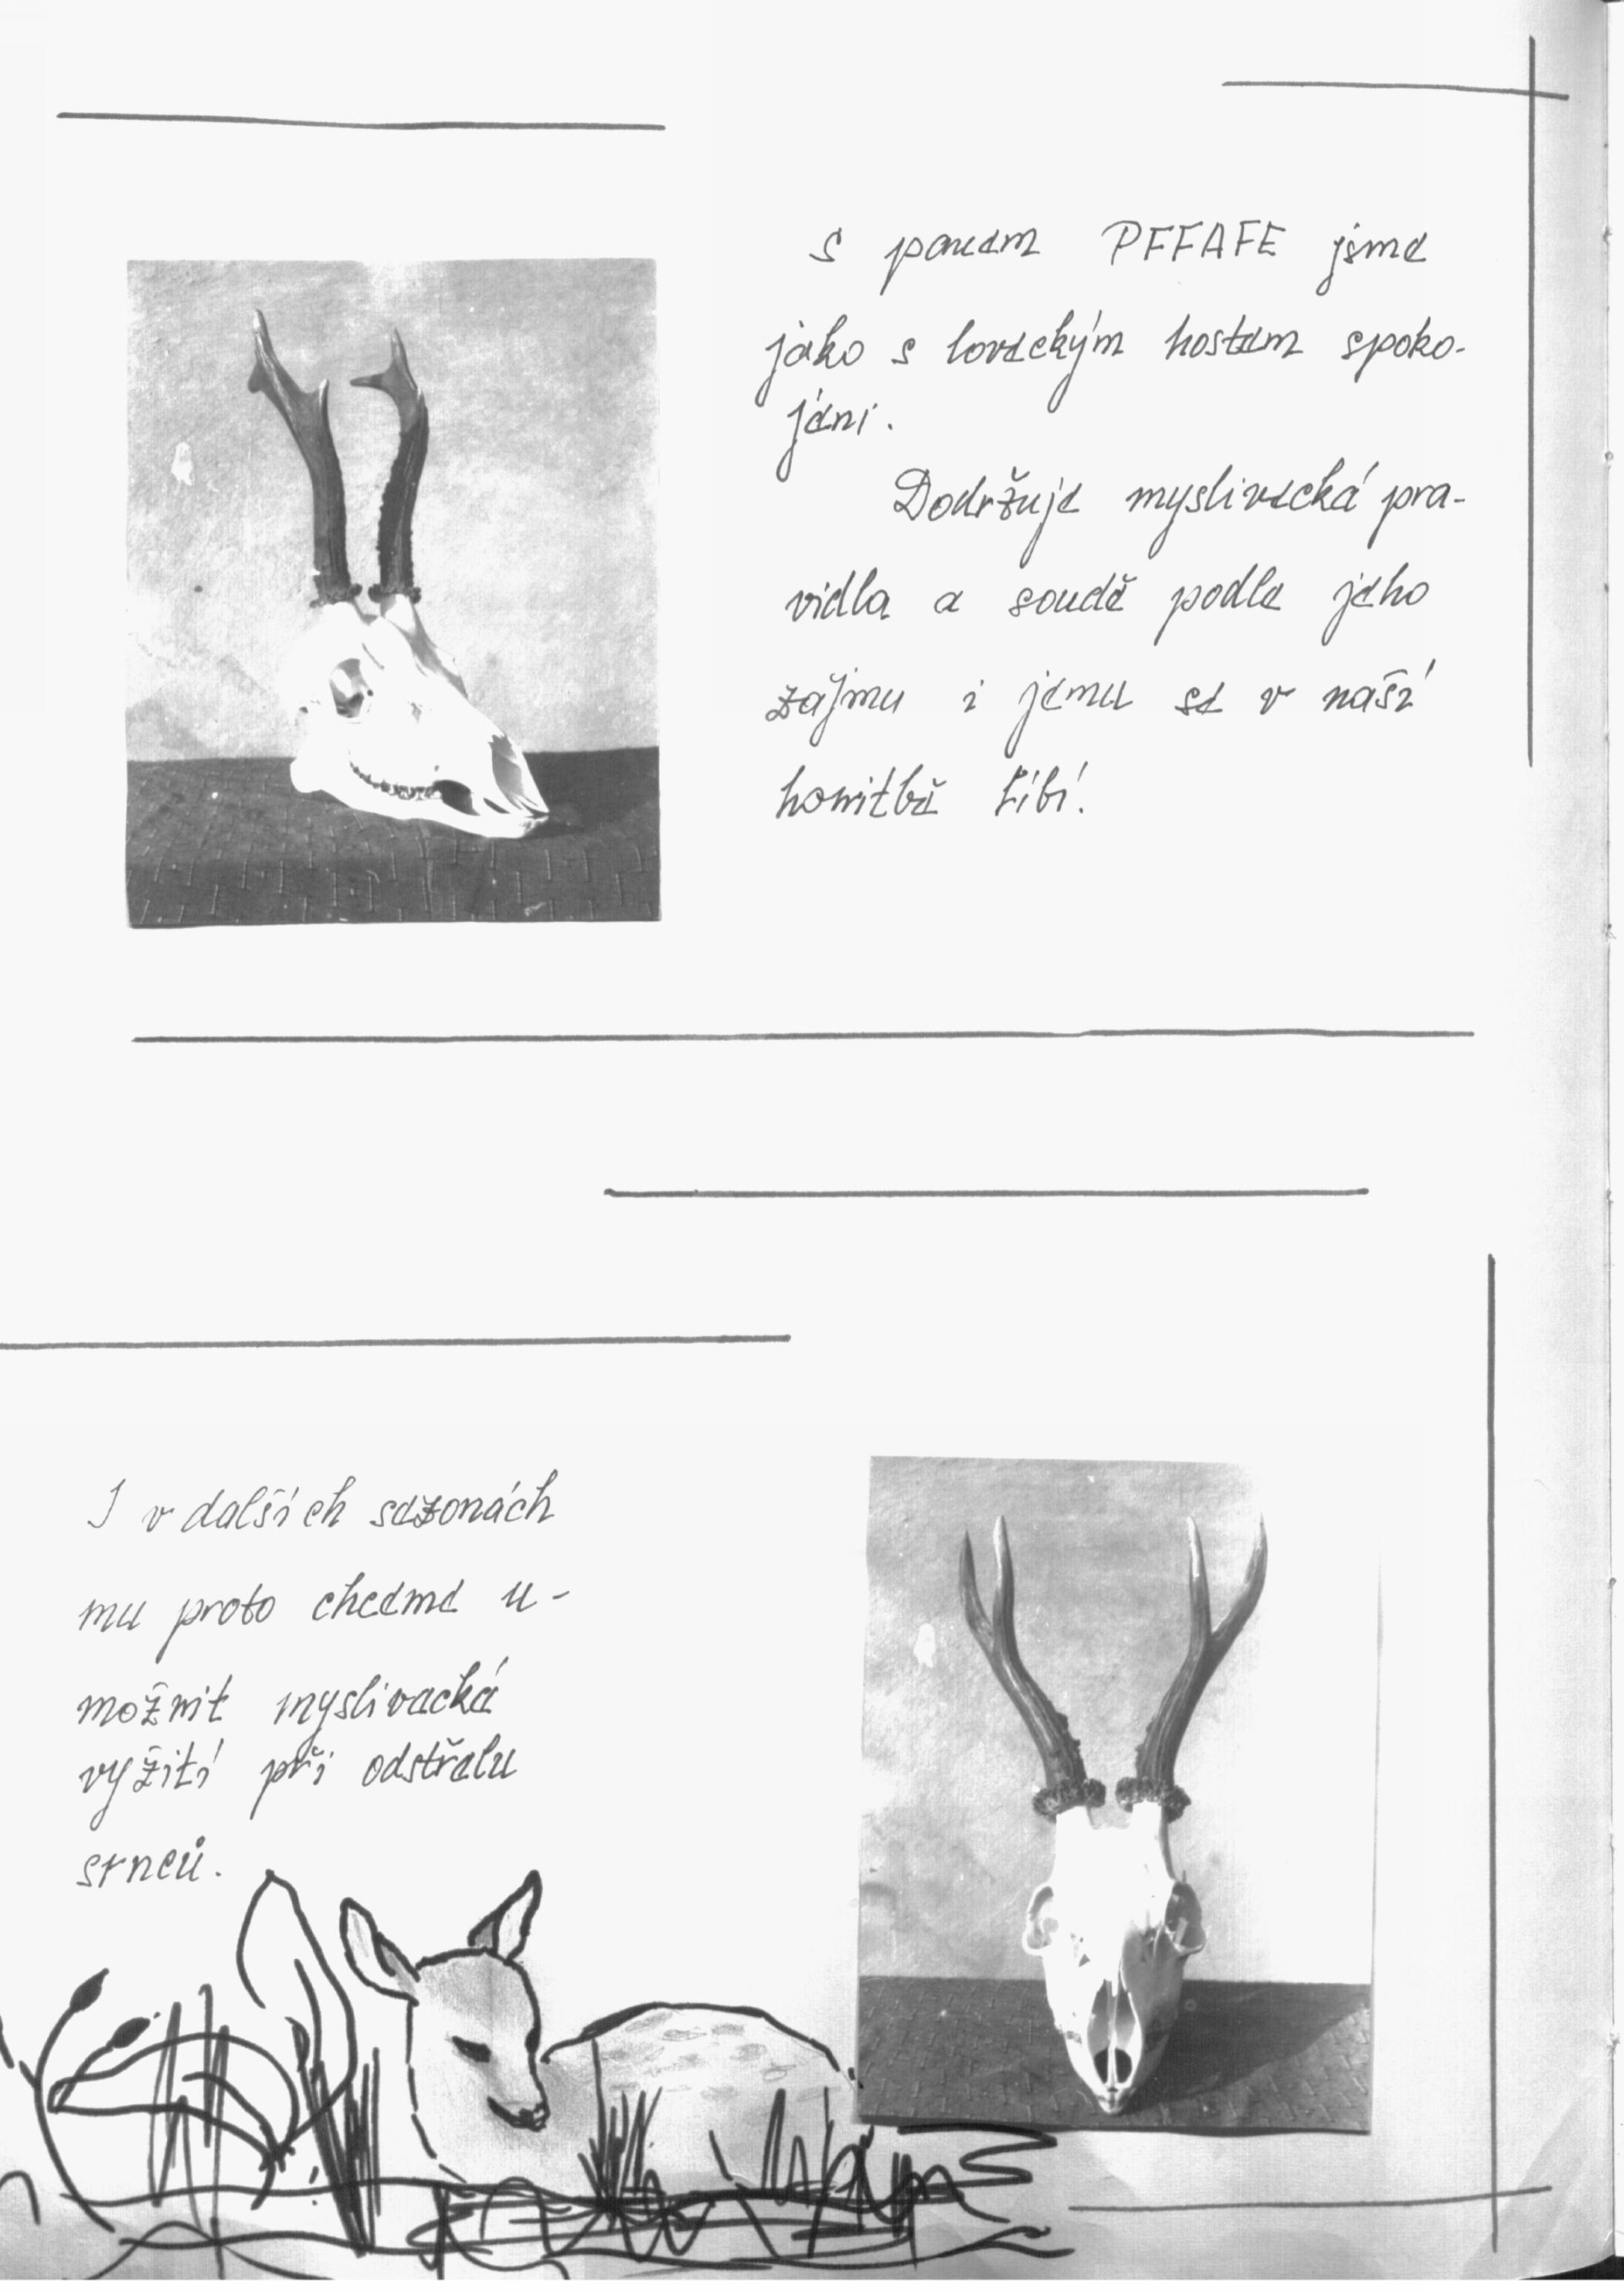 S panem PFFAFE jsme
jako s loveckým hostem spoko-
jeni.
Dodržuje myslivecká pra-
vidla a soudě podle jeho
zájmu i jemu se v naší
honitbě líbí.
I v dalších sezonách
mu proto chceme u-
možnit myslivecké
vyžití při odstřelu
srnců.